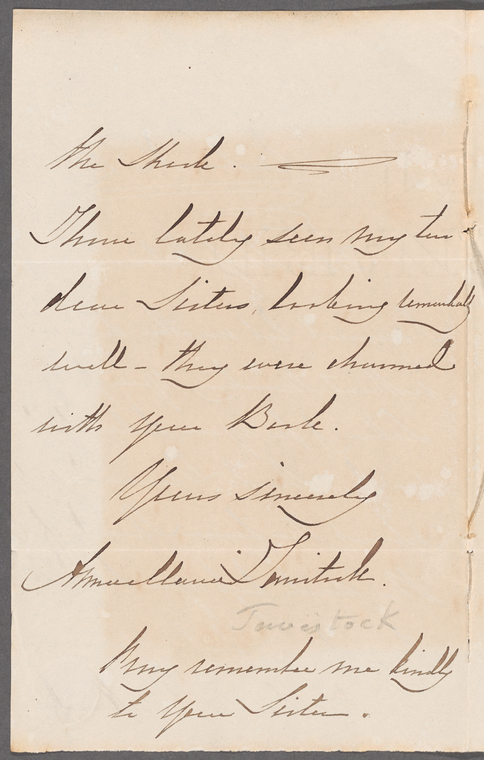 the Shock.
I have lately seen my two
dear Sisters, looking remarkably
well - they were charmed
with your Book.
Yours sincerely
Tavistock.
Tavistock
Pray remember me kindly
to your Sister.